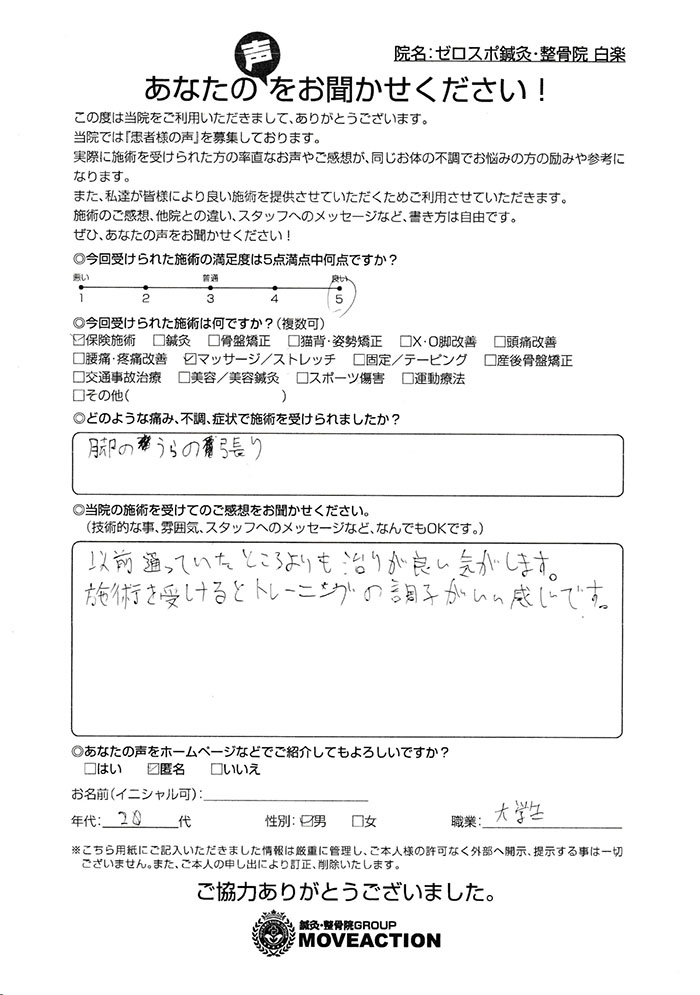 院名：ゼロスポ鍼灸・整骨院 白楽
あなたの声をお聞かせください！
この度は当院をご利用いただきまして、ありがとうございます。
当院では『患者様の声』を募集しております。
実際に施術を受けられた方の率直なお声やご感想が、同じお体の不調でお悩みの方の励みや参考に
なります。
また、私達が皆様により良い施術を提供させていただくためご利用させていただきます。
施術のご感想、他院との違い、スタッフへのメッセージなど、書き方は自由です。
ぜひ、あなたの声をお聞かせください！
◎今回受けられた施術の満足度は5点満点中何点ですか？
悪い 普通 良い
1 2 3 4 5
◎今回受けられた施術は何ですか？（複数可）
☑保険施術 □鍼灸 □骨盤矯正 □猫背・姿勢矯正 □X・O脚改善 □頭痛改善
□腰痛・疼痛改善 ☑マッサージ／ストレッチ □固定／テーピング □産後骨盤矯正
□交通事故治療 □美容／美容鍼灸 □スポーツ傷害 □運動療法
□その他（ ）
◎どのような痛み、不調、症状で施術を受けられましたか？
脚のうらの張り
◎当院の施術を受けてのご感想をお聞かせください。
（技術的な事、雰囲気、スタッフへのメッセージなど、なんでもOKです。）
以前通っていたところよりも治りが良い気がします。
施術を受けるとトレーニングの調子がいい感じです。
◎あなたの声をホームページなどでご紹介してもよろしいですか？
□はい ☑匿名 □いいえ
お名前（イニシャル可）：
年代：20代 性別：☑男 □女 職業：大学生
※こちら用紙にご記入いただきました情報は厳重に管理し、ご本人様の許可なく外部へ開示、提示する事は一切
ございません。また、ご本人の申し出により訂正、削除いたします。
ご協力ありがとうございました。
鍼灸・整骨院GROUP
MOVEACTION